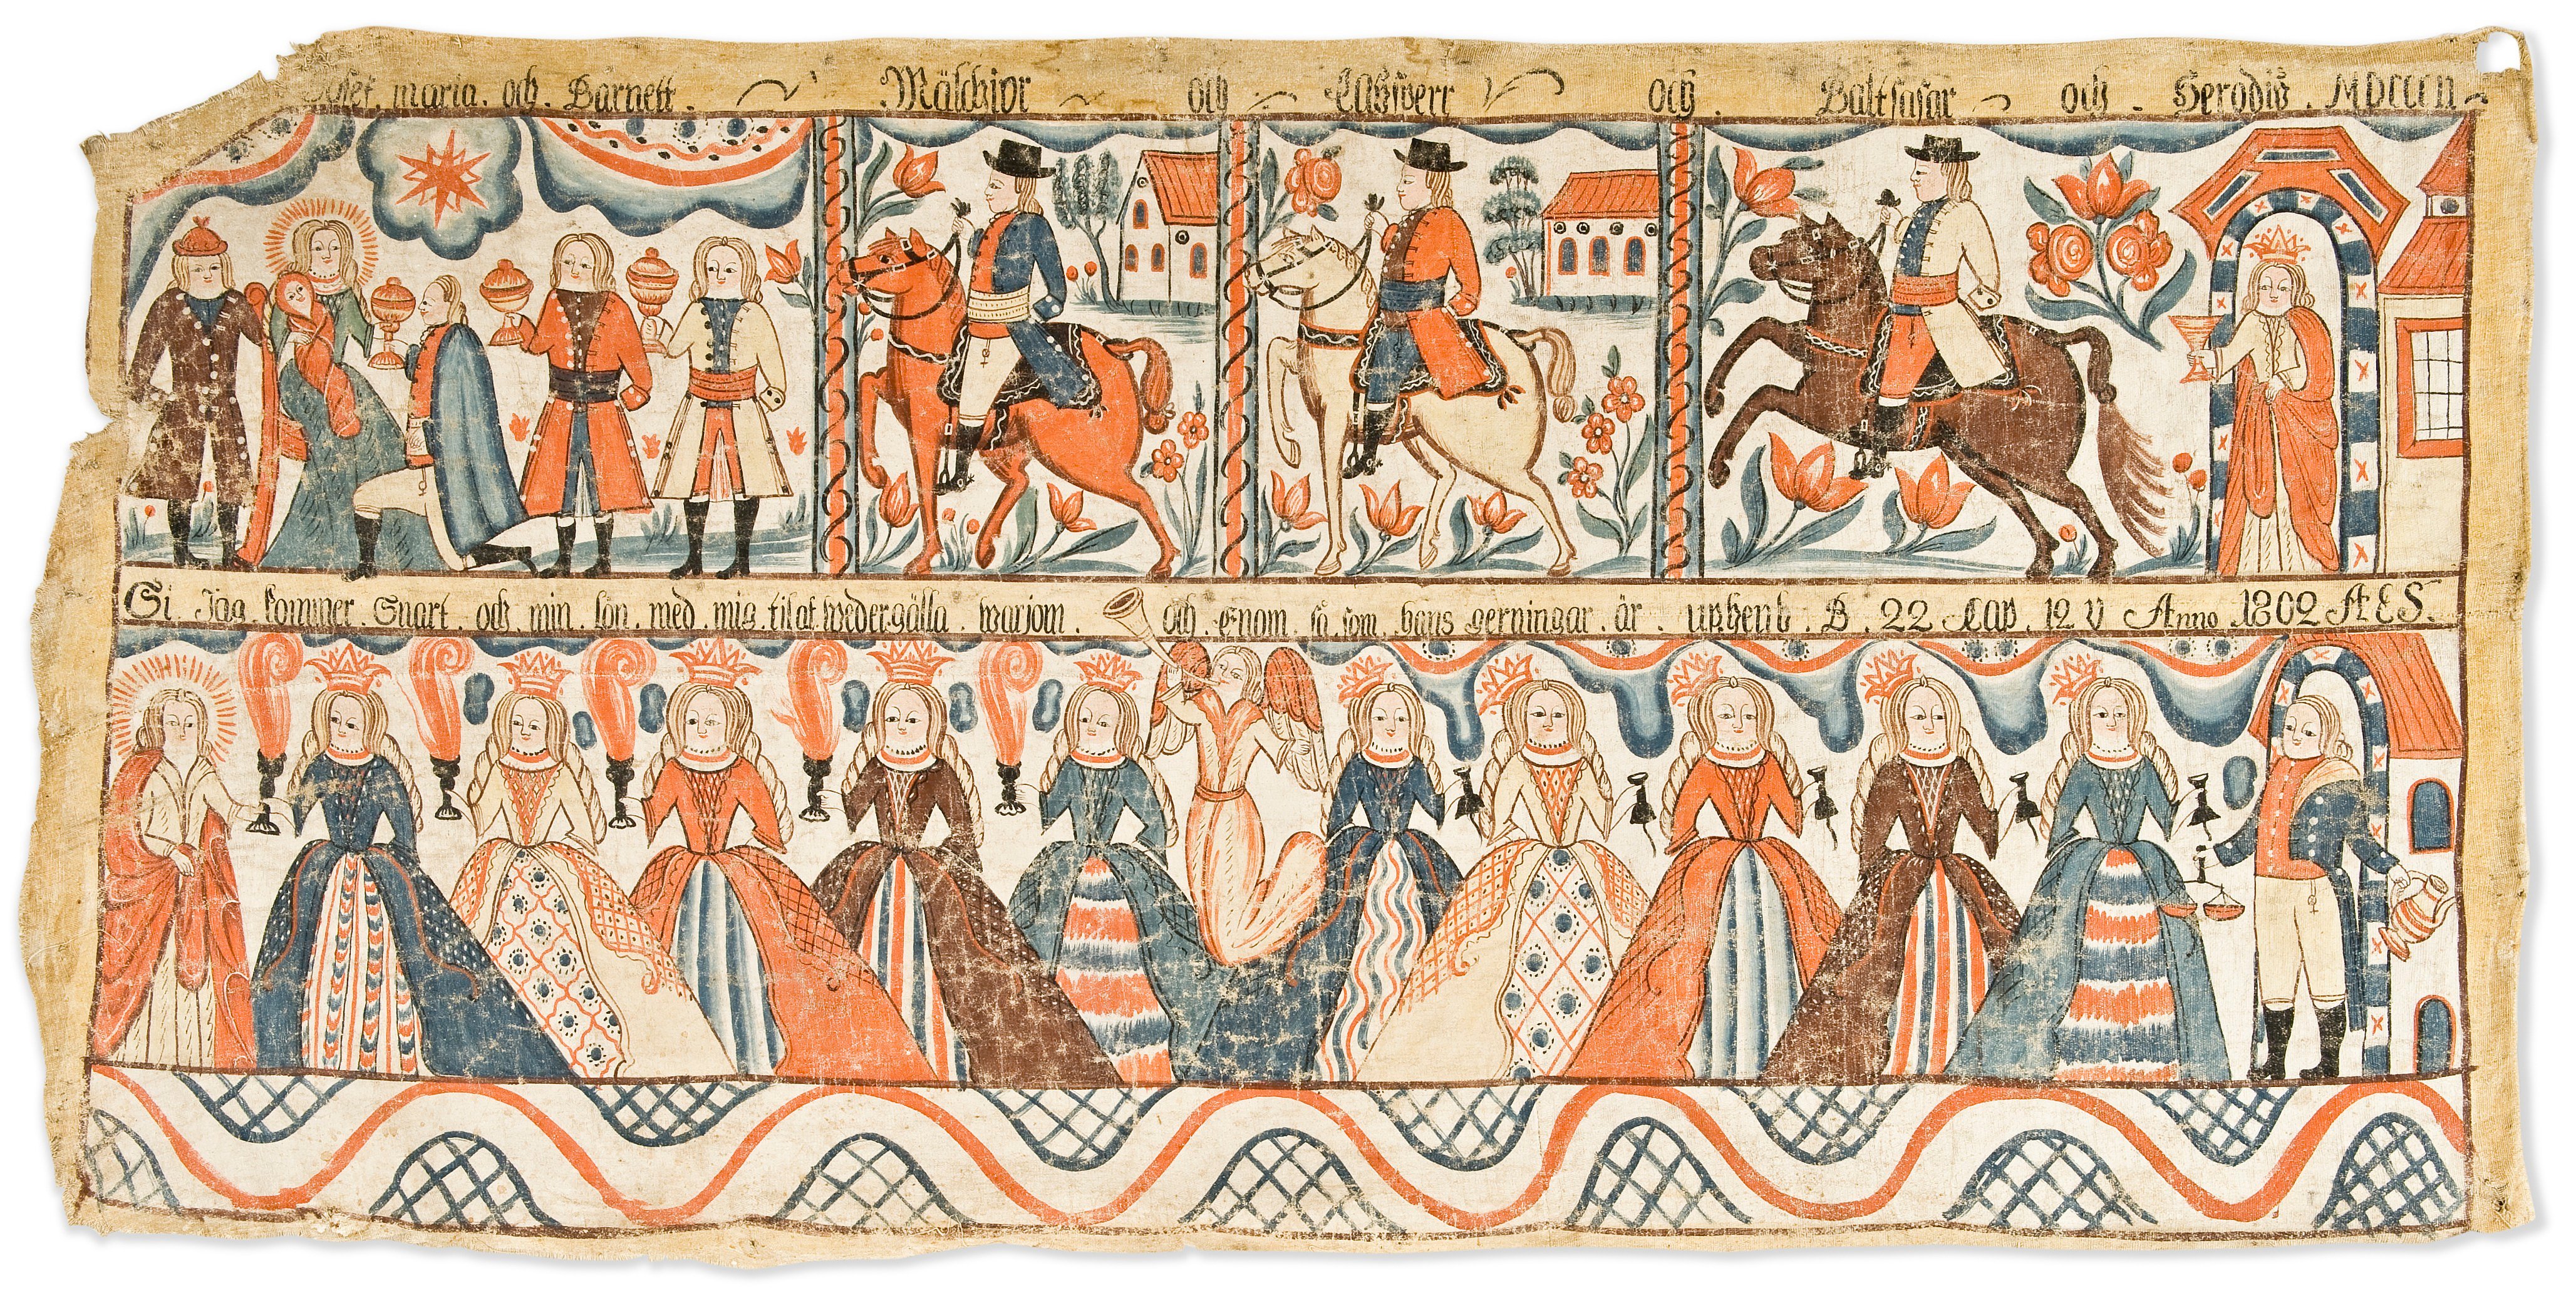 Josef. maria. och. Barnett. Mälchior och Casperr och. Baltsasar och. Herodis. MDCCCII
Si. Jag. kommer. Snart. och. min. lön. med. mig. til at wedergälla. warjom. och. enom. så. som. hans gerningar. är. uphenb. B. 22 Cap. 12 V Anno. 1802 AES.